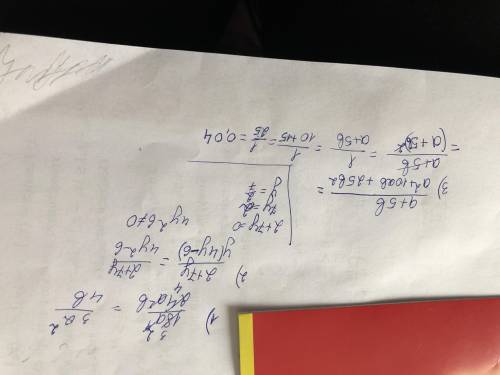 1) 18a³ / 24ab = 3a² / 4b
2) 2+7y / y(4y-6) = 2+7y / 4y²6
4y²6≠0
2+7y=0
7y=-2
y = 2/7
3) a+5b / a²+10ab+25b² =
= a+5b / (a+5b)² = 1 / a+5b = 1 / 10+15 = 1/25 = 0,04